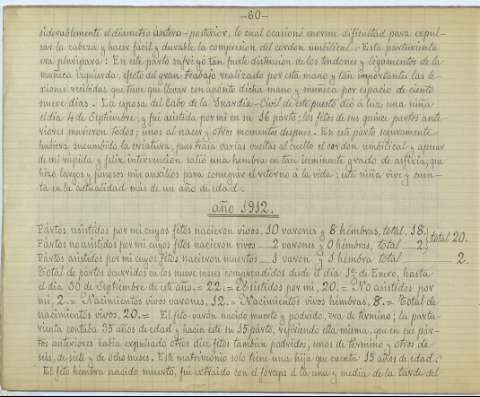 —60—
siderablemente el diametro antero-posterior, lo cual ocasionó enorme dificultad para expul-
sar la cabeza y hacer facil y durable la compresion del cordon umbilical. Esta parturienta
era pluripara: En este parto sufrí yo tan fuerte distension de los tendones y ligamentos de la
muñeca izquierda, efecto del gran trabajo realizado por esta mano y tan importantes las le-
siones recibidas que tuve que llevar con apósito dicha mano y muñeca por espacio de ciento
nueve dias. La esposa del Cabo de la Guardia-Civil de este puesto dió á luz una niña
el dia 4 de Septiembre, y fui asistida por mi en su 16 parto; los fetos de sus quince partos ante-
riores murieron todos; unos al nacer y otros momentos despues. En este parto seguramente
hubiera sucumbido la criatura, pues traia varias vueltas al cuello el cordon umbilical y apesar
de mi rapida y feliz intervencion salió una hembra en tan inminente grado de asfixia, que
hizo largos y penosos mis auxilios para conseguir el retorno á la vida; esta niña vive y cuen-
ta en la actualidad más de un año de edad.
año 1912.
Partos asistidos por mi cuyos fetos nacieron vivos, 10 varones y 8 hembras, total, 18.
Partos no asistidos por mi cuyos fetos nacieron vivos 2 varones y 0 hembras, total 2. total 20.
Partos asistidos por mi cuyos fetos nacieron muertos 1 varon y 1 hembra total 2.
Total de partos ocurridos en los nueve meses comprendidos desde el dia 1º de Enero, hasta
el dia 30 de Septiembre de este año. = 22. = Asistidos por mi, 20. = No asistidos por
mi, 2. = Nacimientos vivos varones, 12. = Nacimientos vivos hembras, 8. = Total de
nacimientos vivos, 20. = El feto-varon nacido muerto y podrido, era de término; la partu-
rienta contaba 35 años de edad y hacia este su 15 parto, refiriendo ella misma, que en sus par-
tos anteriores habia expulsado otros diez fetos tambien podridos, unos de término y otros de
seis, de siete y de ocho meses. Este matrimonio solo tiene una hija que cuenta 15 años de edad.
El feto hembra nacido muerto, fué extraido con el fórceps á la una y media de la tarde del